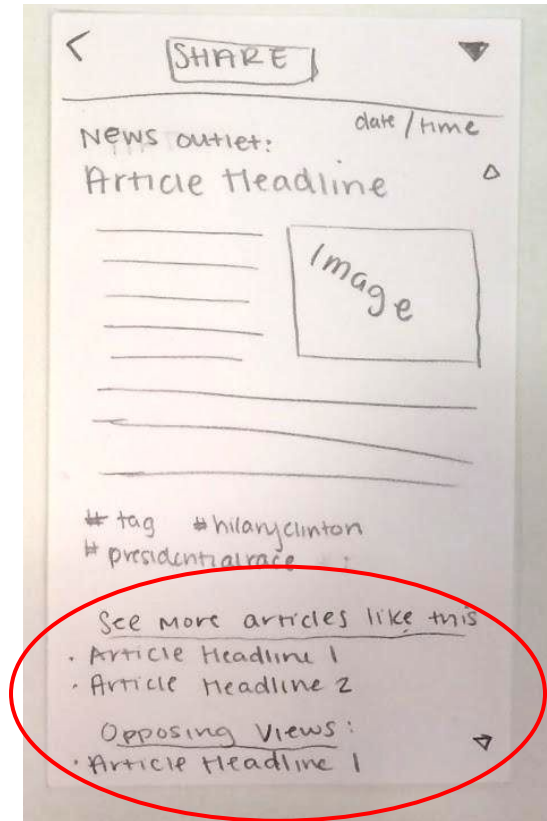 SHARE
date / time
News outlet:
Article Headline
Image
# tag #hilaryclinton
# presidentialrace
See More articles like this
· Article Headline 1
· Article Headline 2
Opposing Views:
· Article Headline 1